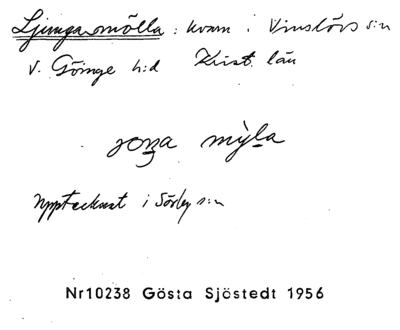 Ljungamölla: kvarn i Vinslövs s:n
V. Göinge h:d Krist. län
joŋa mỳla
upptecknat i Sörby s:n
Nr10238 Gösta Sjöstedt 1956